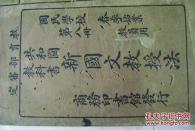 教育部審定
國民學校
第八冊
春季始業
教員用
共和國教科書
新國文教授法
商務印書館發行